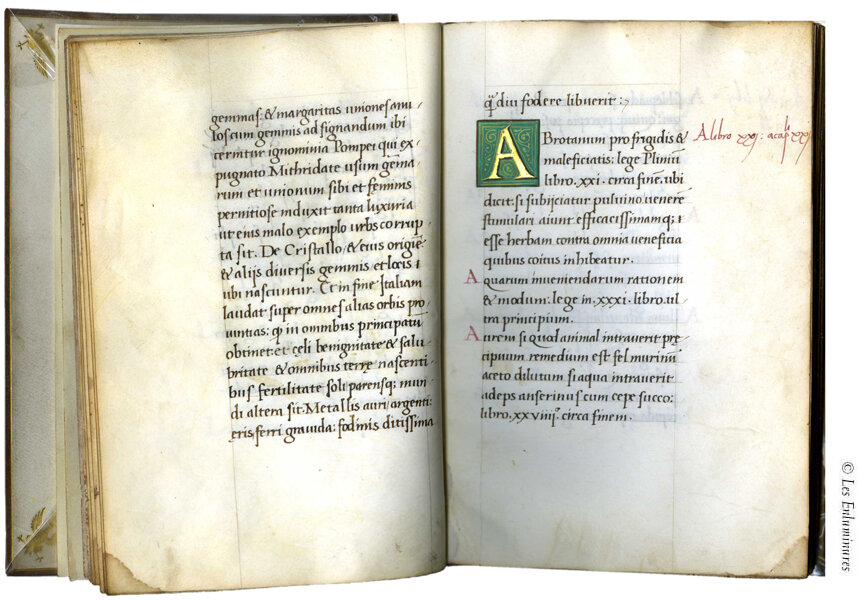 gemmas: & margaritas uniones anu,
loscum gemmis ad signandum ibi
cernitur ignominia Pompei qui ex,
pugnato Mithridate usum gēma,
rum et unionum sibi et feminis
permitiose induxit tanta luxuria
ut eius malo exemplo urbs corrup,
ta sit. De Cristallo, & eius origiē
& alijs diversis gemmis et locis i
ubi nascuntur. Et in fine Italiam
laudat super omnes alias orbis pro,
vintias: ꝙ in omnibus principatū
obtinet et celi benignitate & salu,
britate & omnibus terre nascenti,
bus fertilitate soli parensq; mun,
di altera sit. Metallis auri, argenti:
eris, ferri gravida: fodinis ditissima
q̄ diu fodere libuerit:
ABrotanum pro frigidis &
maleficiatis: lege Plinii
libro. xxi. circa finē, ubi
dicit. si subijciatur pulvino venere
stimulari aiunt. efficacissimamq; i
esse herbam contra omnia veneficia
quibus coitus inhibeatur.
Aquarum inveniendarum rationem
& modum: lege in. xxxi. libro. ul,
tra principium.
Aurem si quod animal intraverit prę,
cipuum remedium est fel murinū
aceto dilutum si aqua intraverit
adeps anserinus cum cepe succo:
libro. xxviiij° circa finem.
A libro xxj:
© Les Enluminures